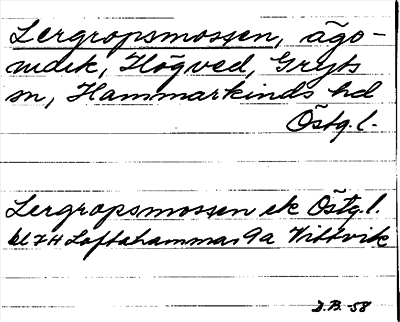 Lergropsmossen, ägo-
mark, Högved, Gryts
sn, Hammarkinds hd
Östg. l.
Lergropsmossen ek Östg. l.
bl 7H Loftahammar 9a Vittvik
D.B. -58